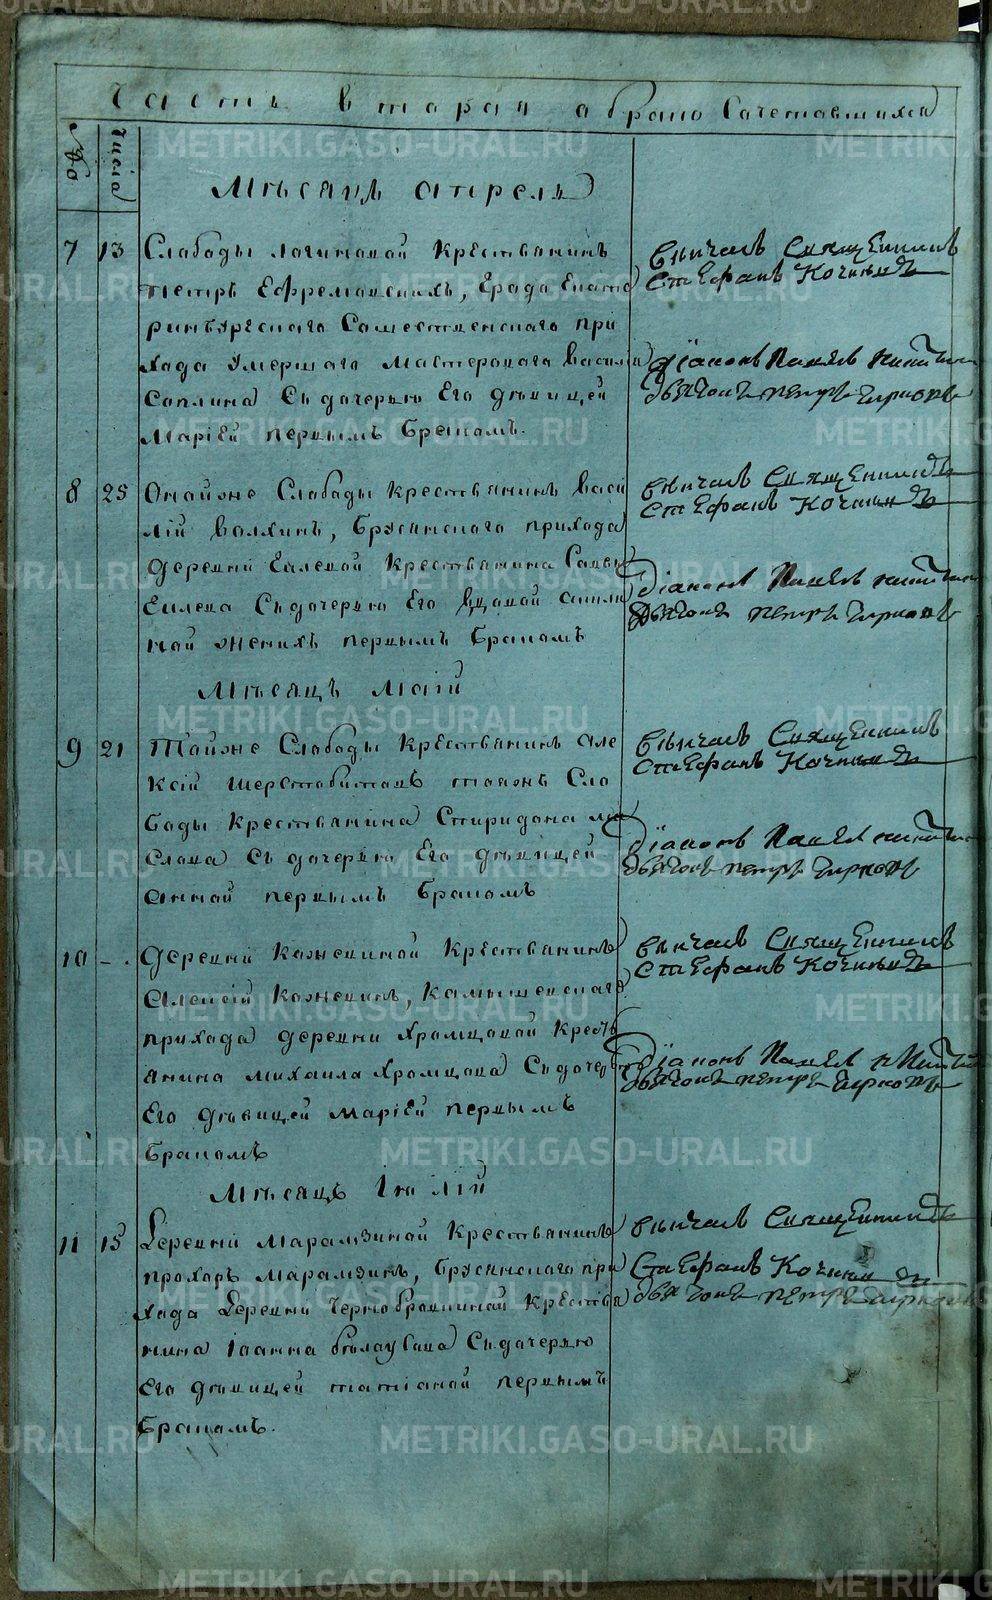 Часть вторая о брако Сочетавшихся
№ Числа
Месяцъ Апрель
7 13 Слабады логиновой крестьянинъ
Петръ Ефремовскихъ, Града Екате
ринбургскаго Сошественскаго при
хода умершаго мастероваго Васили
Соплина Съ дочерью Его девицей
Маріей первымъ бракомъ.
Венчалъ Священникъ
Стефанъ Кочневъ
Діаконъ Павелъ
дьячокъ петръ
8 25 Онайже Слабады крестьянинъ Васи
лій Волхинъ, брусянскаго прихода
деревни крестьянина Савы
Съ дочерью Его вдовой
женихъ первымъ бракомъ
Венчалъ Священникъ
Стефанъ Кочневъ
Діаконъ Павелъ
дьячокъ петръ
Месяцъ Маій
9 21 Тойже Слабады крестьянинъ Але
ксій Шерстобитовъ таяжъ Сло
боды крестьянина Спиридона ма
слова Съ дочерью Его девицей
Анной первымъ бракомъ
Венчалъ Священникъ
Стефанъ Кочневъ
Діаконъ Павелъ
дьячокъ петръ
10 - . Деревни Кожевиной Крестьянинъ
Алексій Кожевинъ, Камышевскаго
прихода деревни Храмцовой Кресть
янина михаила Храмцова Съ дочерью
Его девицей Маріей первымъ
бракомъ
Венчалъ Священникъ
Стефанъ Кочневъ
Діаконъ Павелъ
дьячокъ петръ
Месяцъ Іюлій
11 15 Деревни Марамзиной Крестьянинъ
Прохоръ Марамзинъ, брусянскаго при
хода Деревни Чернобровиной крестья
нина Іоанна Съ дочерью
Его девицей татіаной первымъ
бракомъ.
Венчалъ Священникъ
Стефанъ Кочневъ
дьячокъ петръ
METRIKI.GASO-URAL.RU